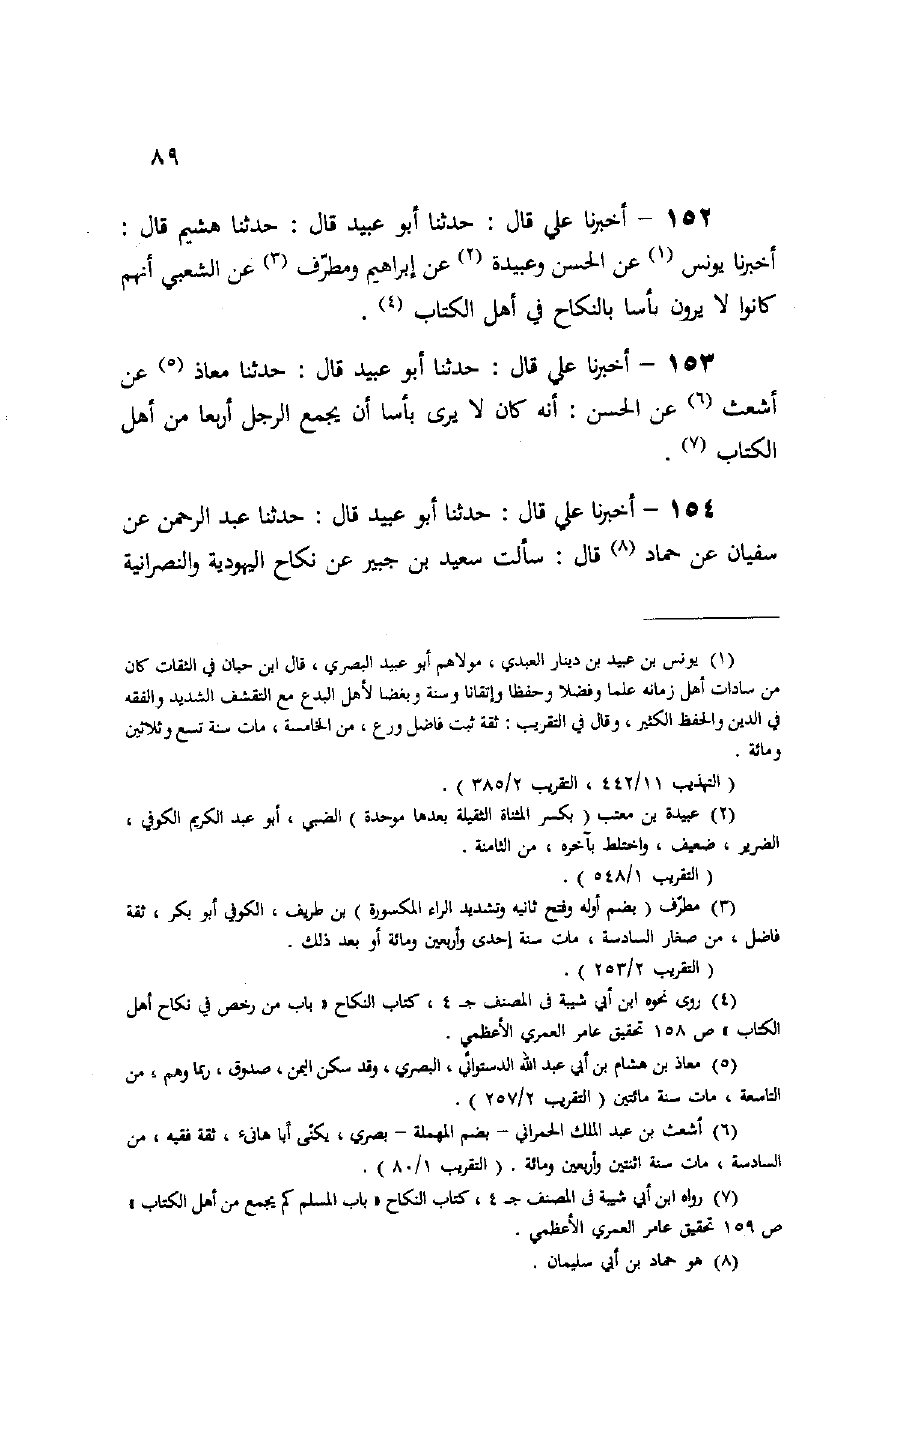 ٨٩
١٥٢ – أخبرنا علي قال : حدثنا أبو عبيد قال : حدثنا هشيم قال :
أخبرنا يونس (١) عن الحسن وعبيدة (٢) عن إبراهيم ومطرّف (٣) عن الشعبي أنهم
كانوا لا يرون بأسا بالنكاح في أهل الكتاب (٤) .
١٥٣ – أخبرنا علي قال : حدثنا أبو عبيد قال : حدثنا معاذ (٥) عن
أشعث (٦) عن الحسن : أنه كان لا يرى بأسا أن يجمع الرجل أربعا من أهل
الكتاب (٧) .
١٥٤ – أخبرنا علي قال : حدثنا أبو عبيد قال : حدثنا عبد الرحمن عن
سفيان عن حماد (٨) قال : سألت سعيد بن جبير عن نكاح اليهودية والنصرانية
(١) يونس بن عبيد بن دينار العبدي ، مولاهم أبو عبيد البصري ، قال ابن حبان في الثقات كان
من سادات أهل زمانه علما وفضلا وحفظا وإتقانا وسنة وبغضا لأهل البدع مع التقشف الشديد والفقه
في الدين والحفظ الكثير ، وقال في التقريب : ثقة ثبت فاضل ورع ، من الخامسة ، مات سنة تسع وثلاثين
ومائة .
( التهذيب ٤٤٢/١١ ، التقريب ٣٨٥/٢ ) .
(٢) عبيدة بن معتب ( بكسر المثناة الثقيلة بعدها موحدة ) الضبي ، أبو عبد الكريم الكوفي ،
الضرير ، ضعيف ، واختلط بآخره ، من الثامنة .
( التقريب ٥٤٨/١ ) .
(٣) مطرّف ( بضم أوله وفتح ثانيه وتشديد الراء المكسورة ) بن طريف ، الكوفي أبو بكر ، ثقة
فاضل ، من صغار السادسة ، مات سنة إحدى وأربعين ومائة أو بعد ذلك .
( التقريب ٢٥٣/٢ ) .
(٤) روى نحوه ابن أبي شيبة فى المصنف جـ ٤ ، كتاب النكاح « باب من رخص في نكاح أهل
الكتاب » ص ١٥٨ تحقيق عامر العمري الأعظمي .
(٥) معاذ بن هشام بن أبي عبد الله الدستوائي ، البصري ، وقد سكن اليمن ، صدوق ، ربما وهم ، من
التاسعة ، مات سنة مائتين ( التقريب ٢٥٧/٢ ) .
(٦) أشعث بن عبد الملك الحمراني – بضم المهملة – بصري ، يكنّى أبا هانىء ، ثقة فقيه ، من
السادسة ، مات سنة اثنتين وأربعين ومائة . ( التقريب ٨٠/١ ) .
(٧) رواه ابن أبي شيبة فى المصنف جـ ٤ ، كتاب النكاح « باب المسلم كم يجمع من أهل الكتاب »
ص ١٥٩ تحقيق عامر العمري الأعظمي .
(٨) هو حماد بن أبي سليمان .